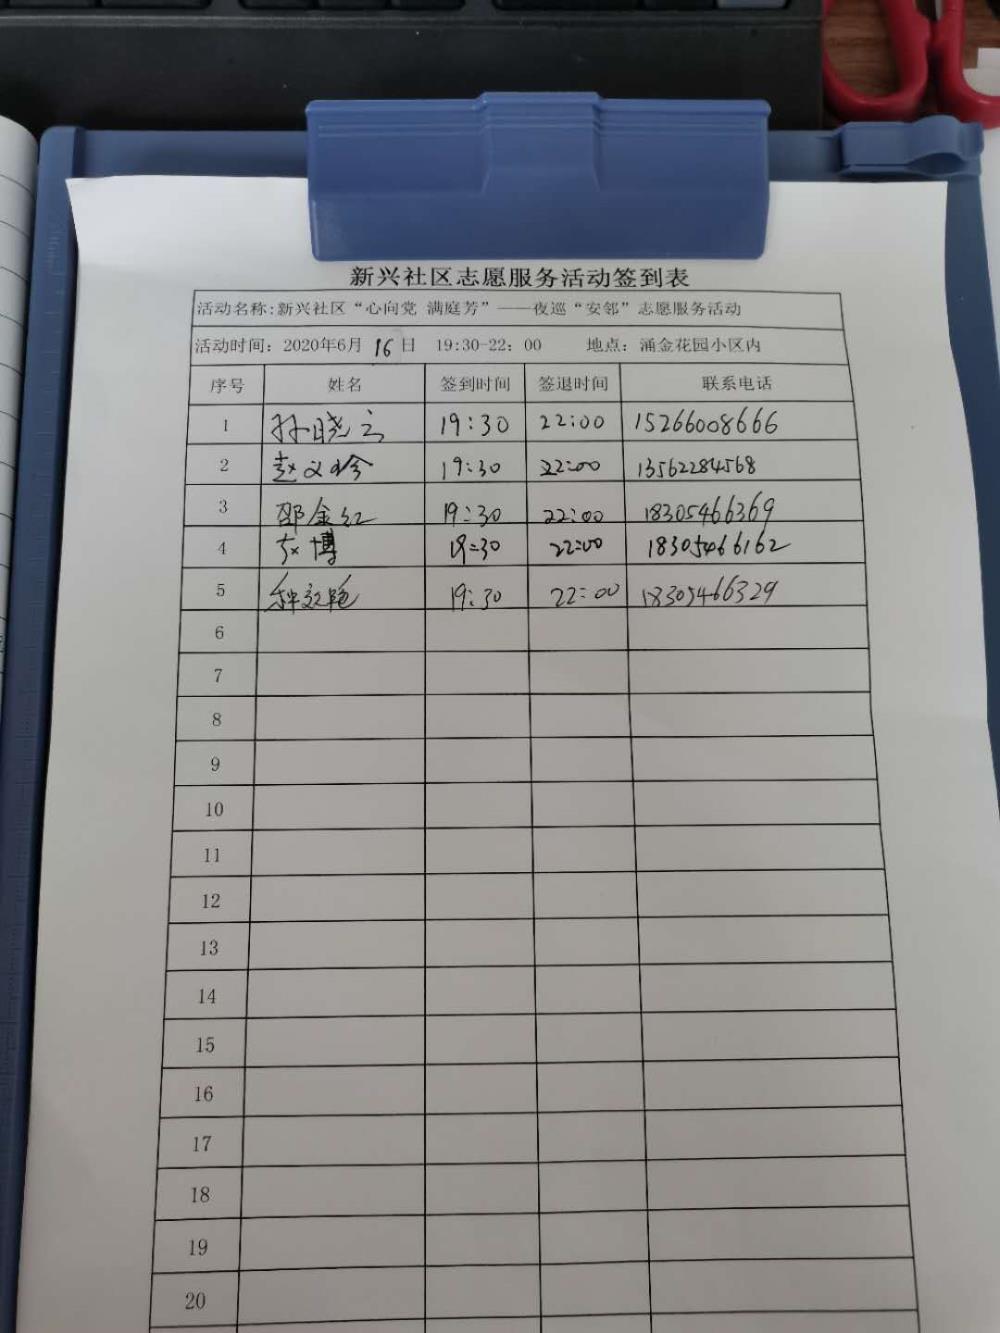 新兴社区志愿服务活动签到表
活动名称:新兴社区“心向党 满庭芳”——夜巡“安邻”志愿服务活动
活动时间：2020年6月16日 19:30-22：00 地点：涌金花园小区内
序号 姓名 签到时间 签退时间 联系电话
1 孙晓云 19:30 22:00 15266008666
2 赵文珍 19:30 22:00 13562284568
3 邵金红 19:30 22:00 18305466369
4 博 19:30 22:00 18305466162
5 19:30 22:00 18305466329
6
7
8
9
10
11
12
13
14
15
16
17
18
19
20